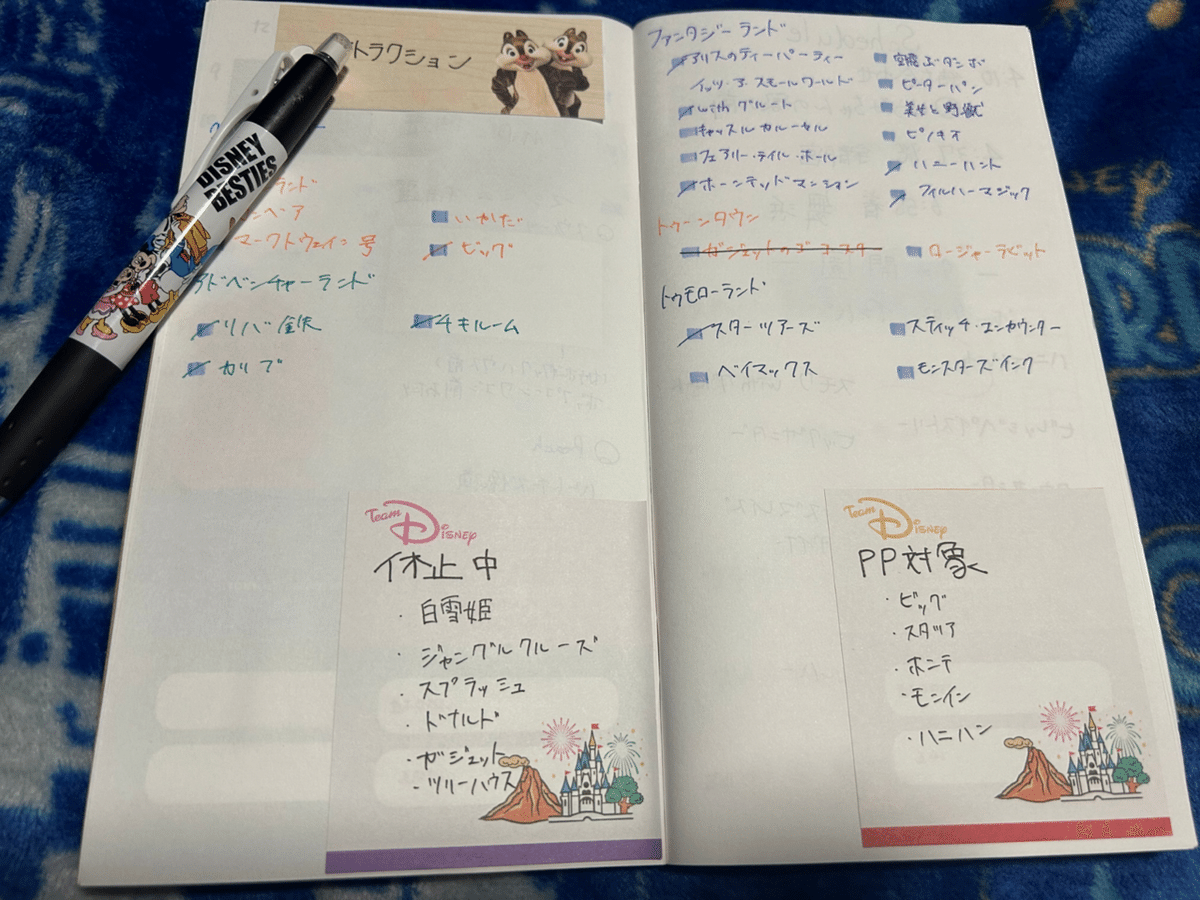 トラクション
DISNEY
BESTIES
ランド
ベア
いかだ
マークトウェイン号
ビッグ
アドベンチャーランド
リバ鉄
チキルーム
カリブ
Team Disney
休止中
・白雪姫
・ジャングルクルーズ
・スプラッシュ
・ドナルド
・ガジェット
・ツリーハウス
ファンタジーランド
アリスのティーパーティー
空飛ぶダンボ
イッツ・ア・スモールワールド
ピーターパン
withグルート
美女と野獣
キャッスルカルーセル
ピノキオ
フェアリーテイル・ホール
ハニーハント
ホーンテッドマンション
フィルハーマジック
トゥーンタウン
ガジェットのゴーコースター
ロージャーラビット
トゥモローランド
スターツアーズ
スティッチ・エンカウンター
ベイマックス
モンスターズインク
Team Disney
PP対象
・ビッグ
・スタツア
・ホンテ
・モンイン
・ハニハン